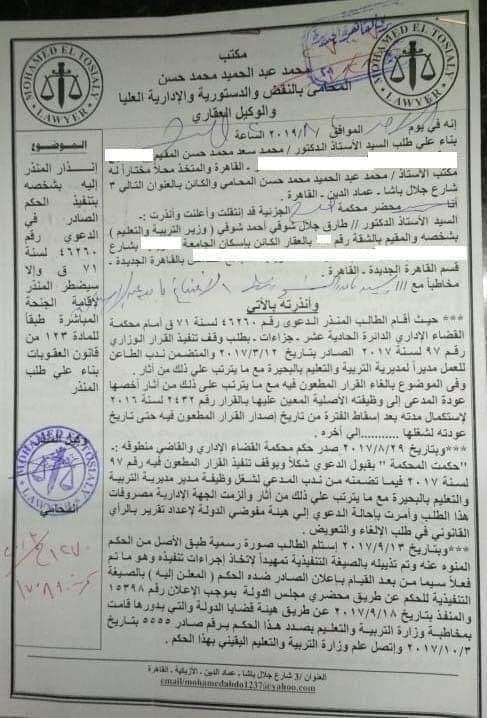 MOHAMED EL TOSIALY
LAWYER
MOHAMED EL TOSIALY
LAWYER
مكتب
محمد عبد الحميد محمد حسن
المحامى بالنقض والدستورية والإدارية العليا
والوكيل العقاري
الموضوع
إنذار المنذر
إليه بشخصه
بتنفيذ الحكم
الصادر في
الدعوي رقم
٤٦٢٦٠ لسنة
٧١ ق وإلا
سيضطر المنذر
لإقامة الجنحة
المباشرة طبقاً
للمادة ١٢٣ من
قانون العقوبات
بناء علي طلب
المنذر
إنه في يوم الموافق / ٢٠١٩/٨ الساعة
بناء علي طلب السيد الأستاذ الدكتور / محمد سعد محمد حسن المقيم
- القاهرة والمتخذ محلاً مختاراً له
مكتب الأستاذ / محمد عبد الحميد محمد حسن المحامي والكائن بالعنوان التالي ٣
شارع جلال باشا - عماد الدين - القاهرة .
أنا محضر محكمة الجزئية قد إنتقلت وأعلنت وأنذرت :-
السيد الأستاذ الدكتور - / طارق جلال شوقي أحمد شوقي ( وزير التربية والتعليم )
بشخصه والمقيم بالشقة رقم بالعقار الكائن بإسكان الجامعة بشارع
بالقاهرة الجديدة -
قسم القاهرة الجديدة - القاهرة .
مخاطباً مع ///
وأنذرته بالآتي
*** حيث أقام الطالب المنذر الدعوى رقم ٤٦٢٦٠ لسنة ٧١ ق أمام محكمة
القضاء الإداري الدائرة الحادية عشر - جزاءات - بطلب وقف تنفيذ القرار الوزاري
رقم ٩٧ لسنة ٢٠١٧ الصادر بتاريخ ٢٠١٧/٣/١٢ والمتضمن ندب الطاعن
للعمل مديراً لمديرية التربية والتعليم بالبحيرة مع ما يترتب علي ذلك من آثار .
وفى الموضوع بالغاء القرار المطعون فيه مع ما يترتب علي ذلك من آثار أخصها
عودة المدعى إلى وظيفته الأصلية المعين عليها بالقرار رقم ٢٤٣٢ لسنة ٢٠١٦
لإستكمال مدته بعد إسقاط الفترة من تاريخ إصدار القرار المطعون فيه حتى تاريخ
عودته لشغلها ...........إلي أخره .
***وبتاريخ ٢٠١٧/٨/٢٩ صدر حكم محكمة القضاء الإداري والقاضي منطوقه :-
"حكمت المحكمة" بقبول الدعوي شكلاً وبوقف تنفيذ القرار المطعون فيه رقم ٩٧
لسنة ٢٠١٧ فيما تضمنه من ندب المدعي لشغل وظيفة مدير مديرية التربية
والتعليم بالبحيرة مع ما يترتب علي ذلك من آثار وألزمت الجهة الإدارية مصروفات
هذا الطلب وأمرت بإحالة الدعوي إلي هيئة مفوضي الدولة لإعداد تقرير بالرأي
القانوني في طلب الإلغاء والتعويض .
*** وبتاريخ ٢٠١٧/٩/١٣ إستلم الطالب صورة رسمية طبق الأصل من الحكم
المنوه عنه وتم تذييله بالصيغة التنفيذية تمهيداً لإتخاذ إجراءات تنفيذه وهو ما تم
فعلاً سيما من بعد القيام بإعلان الصادر ضده الحكم ( المعلن إليه ) بالصيغة
التنفيذية للحكم عن طريق محضري مجلس الدولة بموجب الإعلان رقم ١٥٣٩٨
والمنفذ بتاريخ ٢٠١٧/٩/١٨ عن طريق هيئة قضايا الدولة والتي بدورها قامت
بمخاطبة وزارة التربية والتعليم بصدد هذا الحكم برقم صادر ٥٥٥٥ بتاريخ
٢٠١٧/١٠/٣ وإتصل علم وزارة التربية والتعليم اليقيني بهذا الحكم .
MOHAMED EL TOSIALY
LAWYER
العنوان /٣ شارع جلال باشا . عماد الدين . الأزبكية . القاهرة
email/mohamedabdo1237@yahoo.com